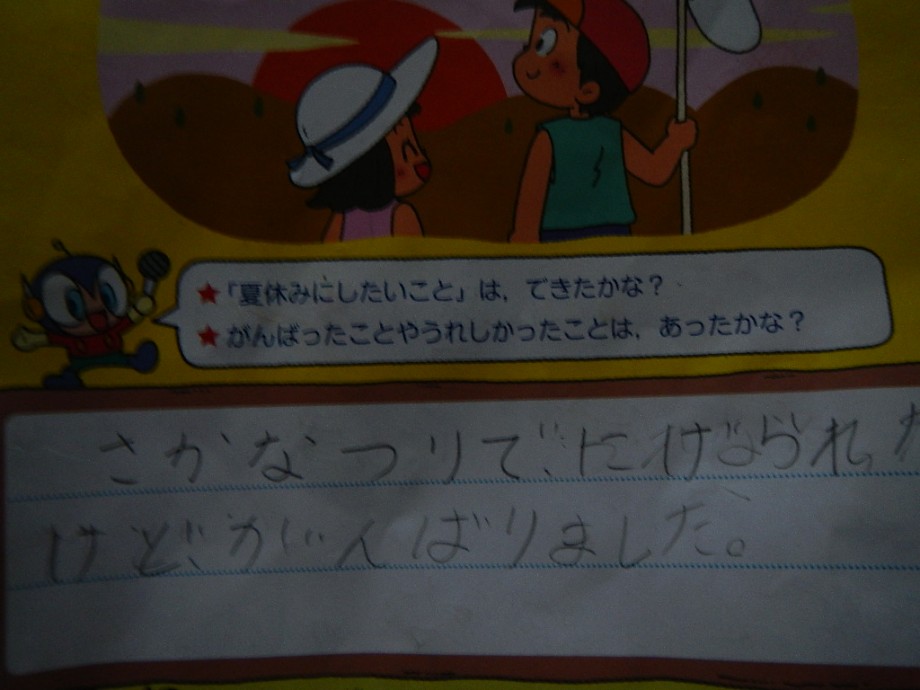 ★「夏休みにしたいこと」は，できたかな？
★がんばったことやうれしかったことは，あったかな？
さかなつりで、にげられた
けど、がんばりました。